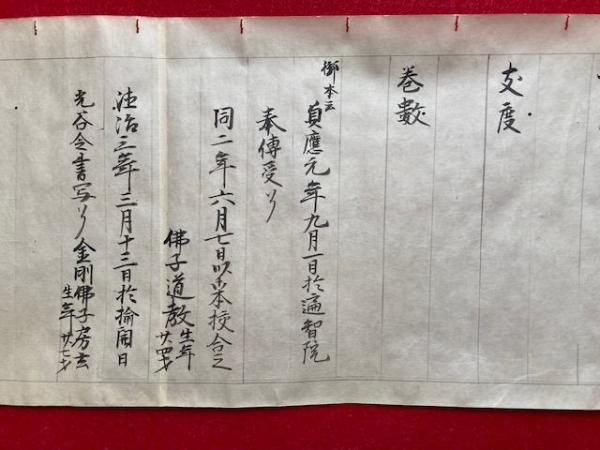 支度
卷數
御本云
貞應元年九月一日於遍智院
奉傳受了
同二年六月七日以本校合之
佛子道教生年廿四才
治三年三月十三日於
令書写了金剛佛子房玄生年廿七才